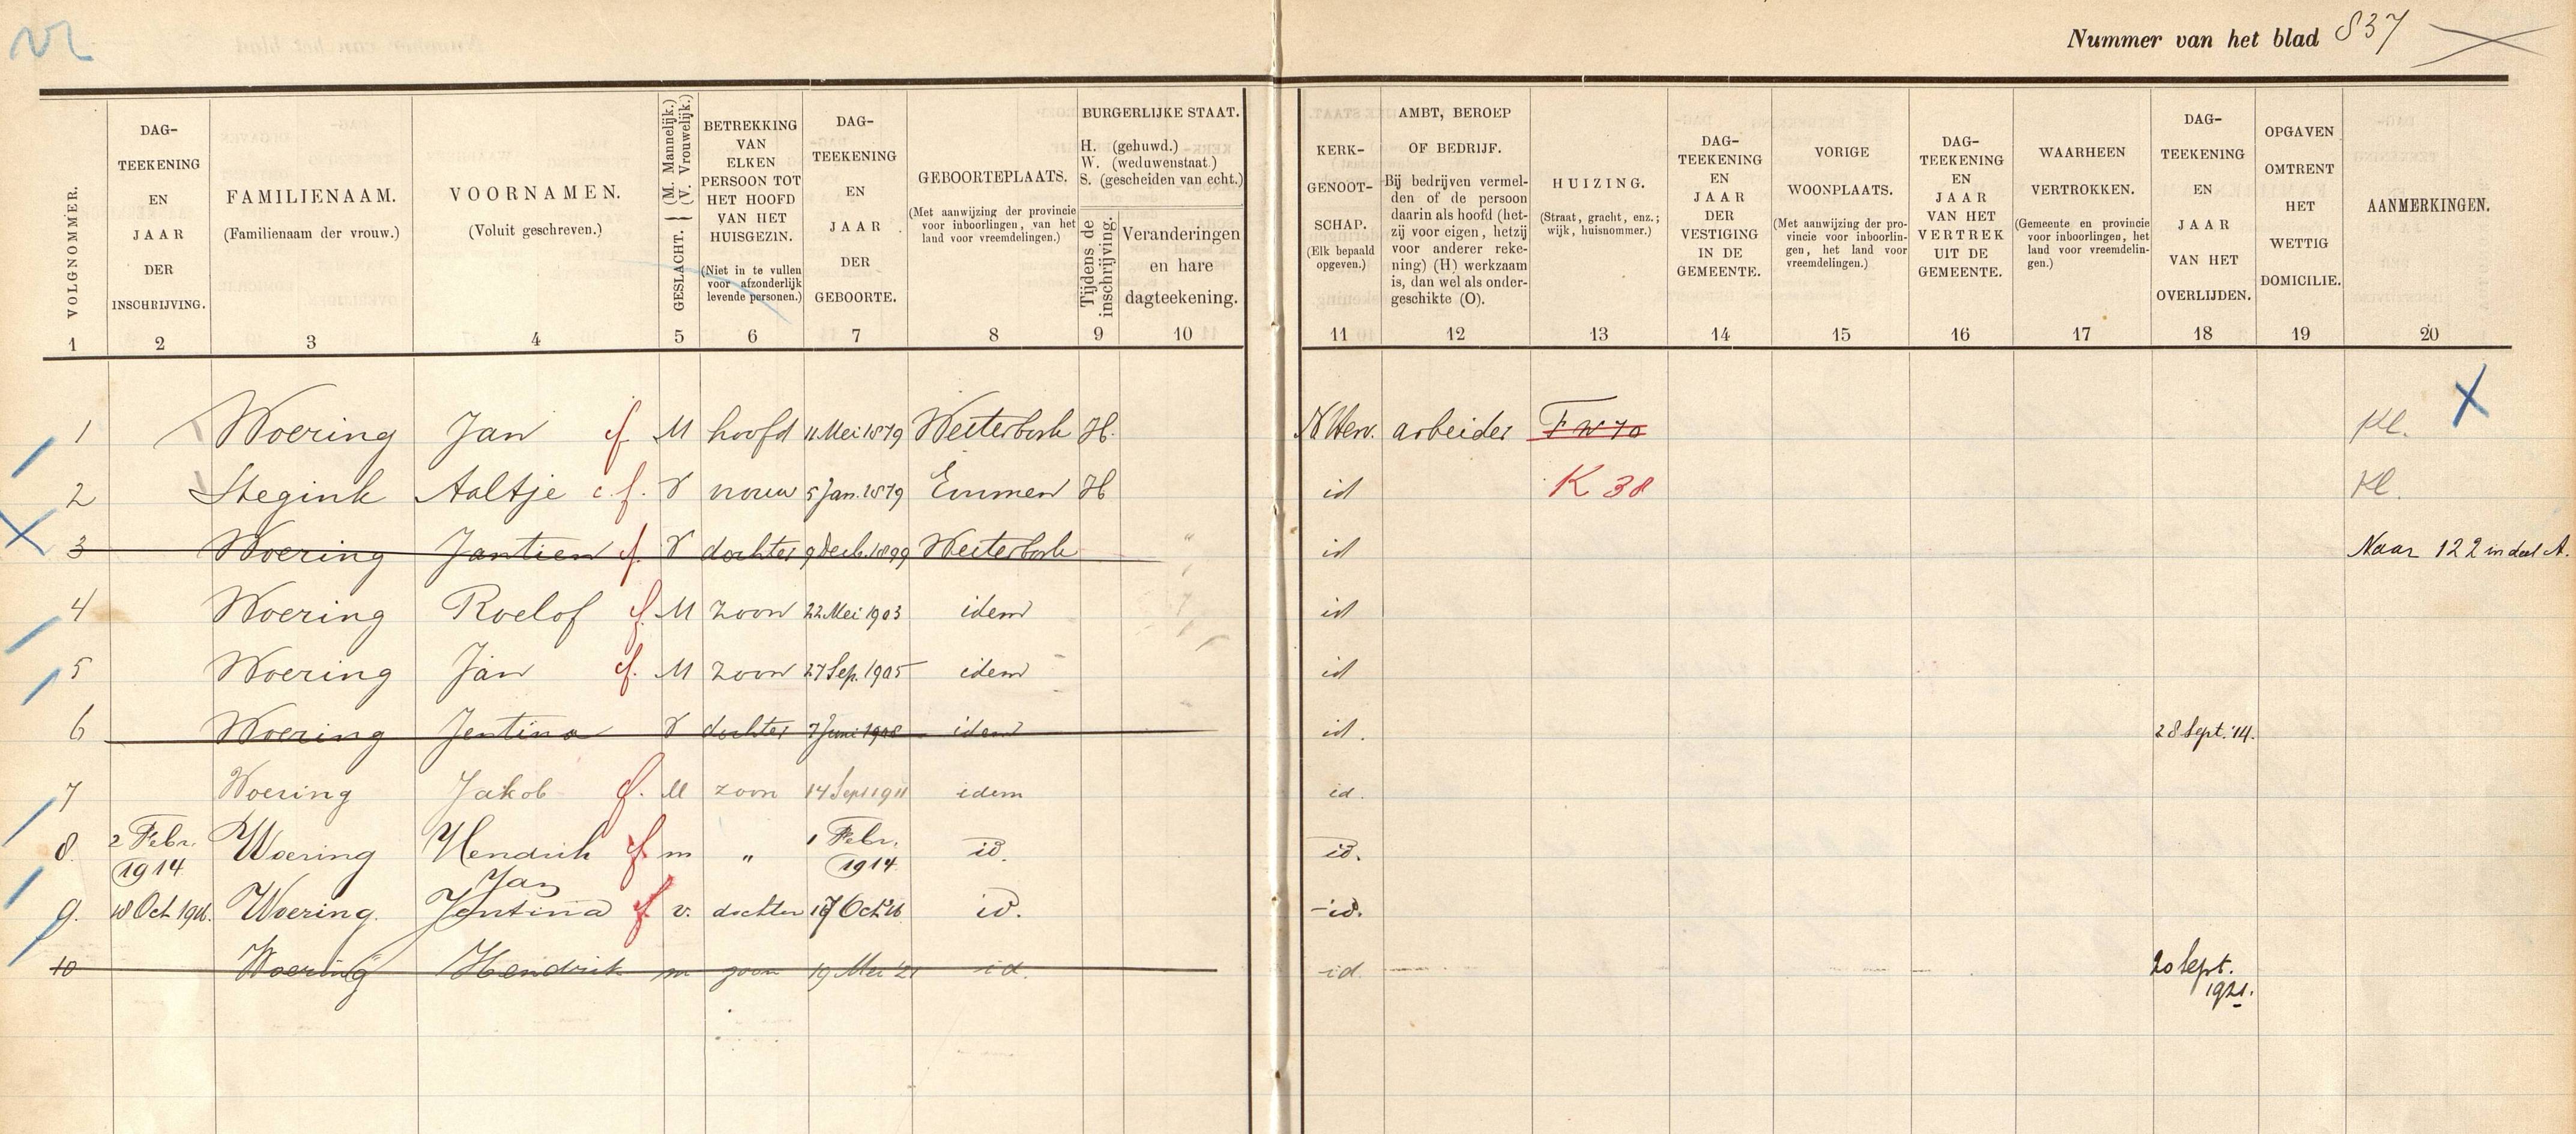 Nummer van het blad 837
VOLGNOMMER.
DAG-
TEEKENING
EN
JAAR
DER
INSCHRIJVING.
FAMILIENAAM.
(Familienaam der vrouw.)
VOORNAMEN.
(Voluit geschreven.)
GESLACHT. { (M. Mannelijk.) (V. Vrouwelijk.)
BETREKKING
VAN
ELKEN
PERSOON TOT
HET HOOFD
VAN HET
HUISGEZIN.
(Niet in te vullen
voor afzonderlijk
levende personen.)
DAG-
TEEKENING
EN
JAAR
DER
GEBOORTE.
GEBOORTEPLAATS.
(Met aanwijzing der provincie
voor inboorlingen, van het
land voor vreemdelingen.)
BURGERLIJKE STAAT.
H. (gehuwd.)
W. (weduwenstaat.)
S. (gescheiden van echt.)
Tijdens de
inschrijving.
Veranderingen
en hare
dagteekening.
KERK-
GENOOT-
SCHAP.
(Elk bepaald
opgeven.)
AMBT, BEROEP
OF BEDRIJF.
Bij bedrijven vermel-
den of de persoon
daarin als hoofd (het-
zij voor eigen, hetzij
voor anderer reke-
ning) (H) werkzaam
is, dan wel als onder-
geschikte (O).
HUIZING.
(Straat, gracht, enz.;
wijk, huisnommer.)
DAG-
TEEKENING
EN
JAAR
DER
VESTIGING
IN DE
GEMEENTE.
VORIGE
WOONPLAATS.
(Met aanwijzing der pro-
vincie voor inboorlin-
gen, het land voor
vreemdelingen.)
DAG-
TEEKENING
EN
JAAR
VAN HET
VERTREK
UIT DE
GEMEENTE.
WAARHEEN
VERTROKKEN.
(Gemeente en provincie
voor inboorlingen, het
land voor vreemdelin-
gen.)
DAG-
TEEKENING
EN
JAAR
VAN HET
OVERLIJDEN.
OPGAVEN
OMTRENT
HET
WETTIG
DOMICILIE.
AANMERKINGEN.
1 2 3 4 5 6 7 8 9 10 11 12 13 14 15 16 17 18 19 20
1 Woering Jan f. M hoofd 11 Mei 1879 Westerbork H. N Herv. arbeider F W 70 Kl.
2 Stegink Aaltje c.f. V vrouw 5 Jan. 1879 Emmen H id K 38 Kl.
3 Woering Jantien f. V dochter 9 Decb. 1899 Westerbork id Naar 122 in deel A.
4 Woering Roelof f. M zoon 22 Mei 1903 idem id
5 Woering Jan f. M zoon 27 Sep. 1905 idem id
6 Woering Jentina V dochter 7 Juni 1908 idem id. 28 Sept. '14.
7 Woering Jakob f. M zoon 14 Sept 1911 idem id.
8. 2 Febr. 1914 Woering Hendrik f. m " 1 Febr. 1914 id. id.
Jan
9. 18 Oct 1916. Woering. Jentina f. v. dochter 17 Oct. 16 id. id.
10 Woering Hendrik m zoon 19 Mei '21 id. id. 20 Sept. 1921.